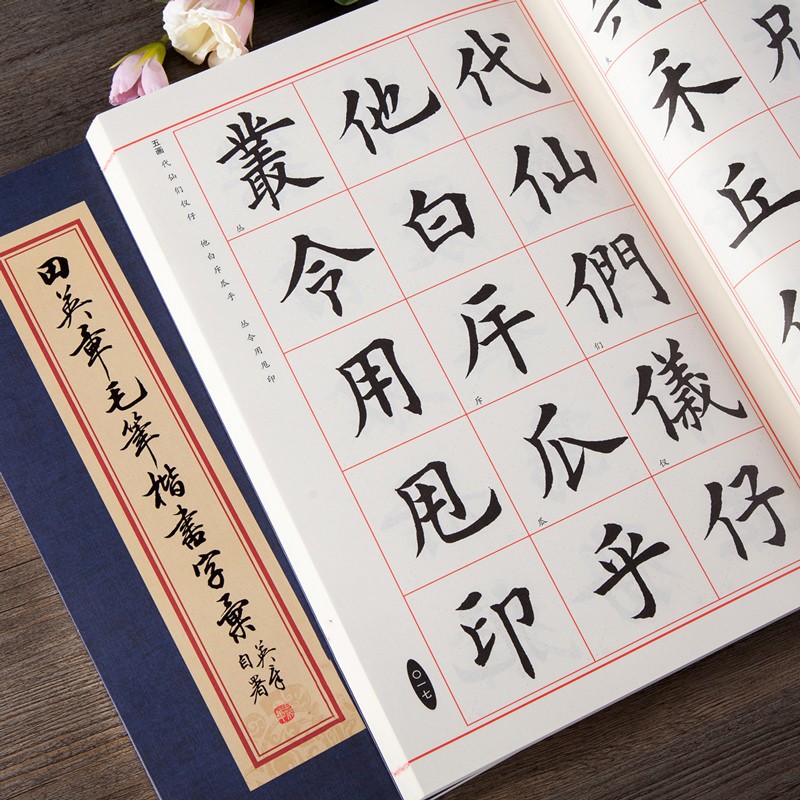 田英章毛筆楷書字彙
英章
自署
禾丘
代仙們儀仔
们
仪
他白斥瓜乎
斥
瓜
叢令用甩印
丛
五画 代仙们仪仔 他白斥瓜乎 丛令用甩印
〇一七